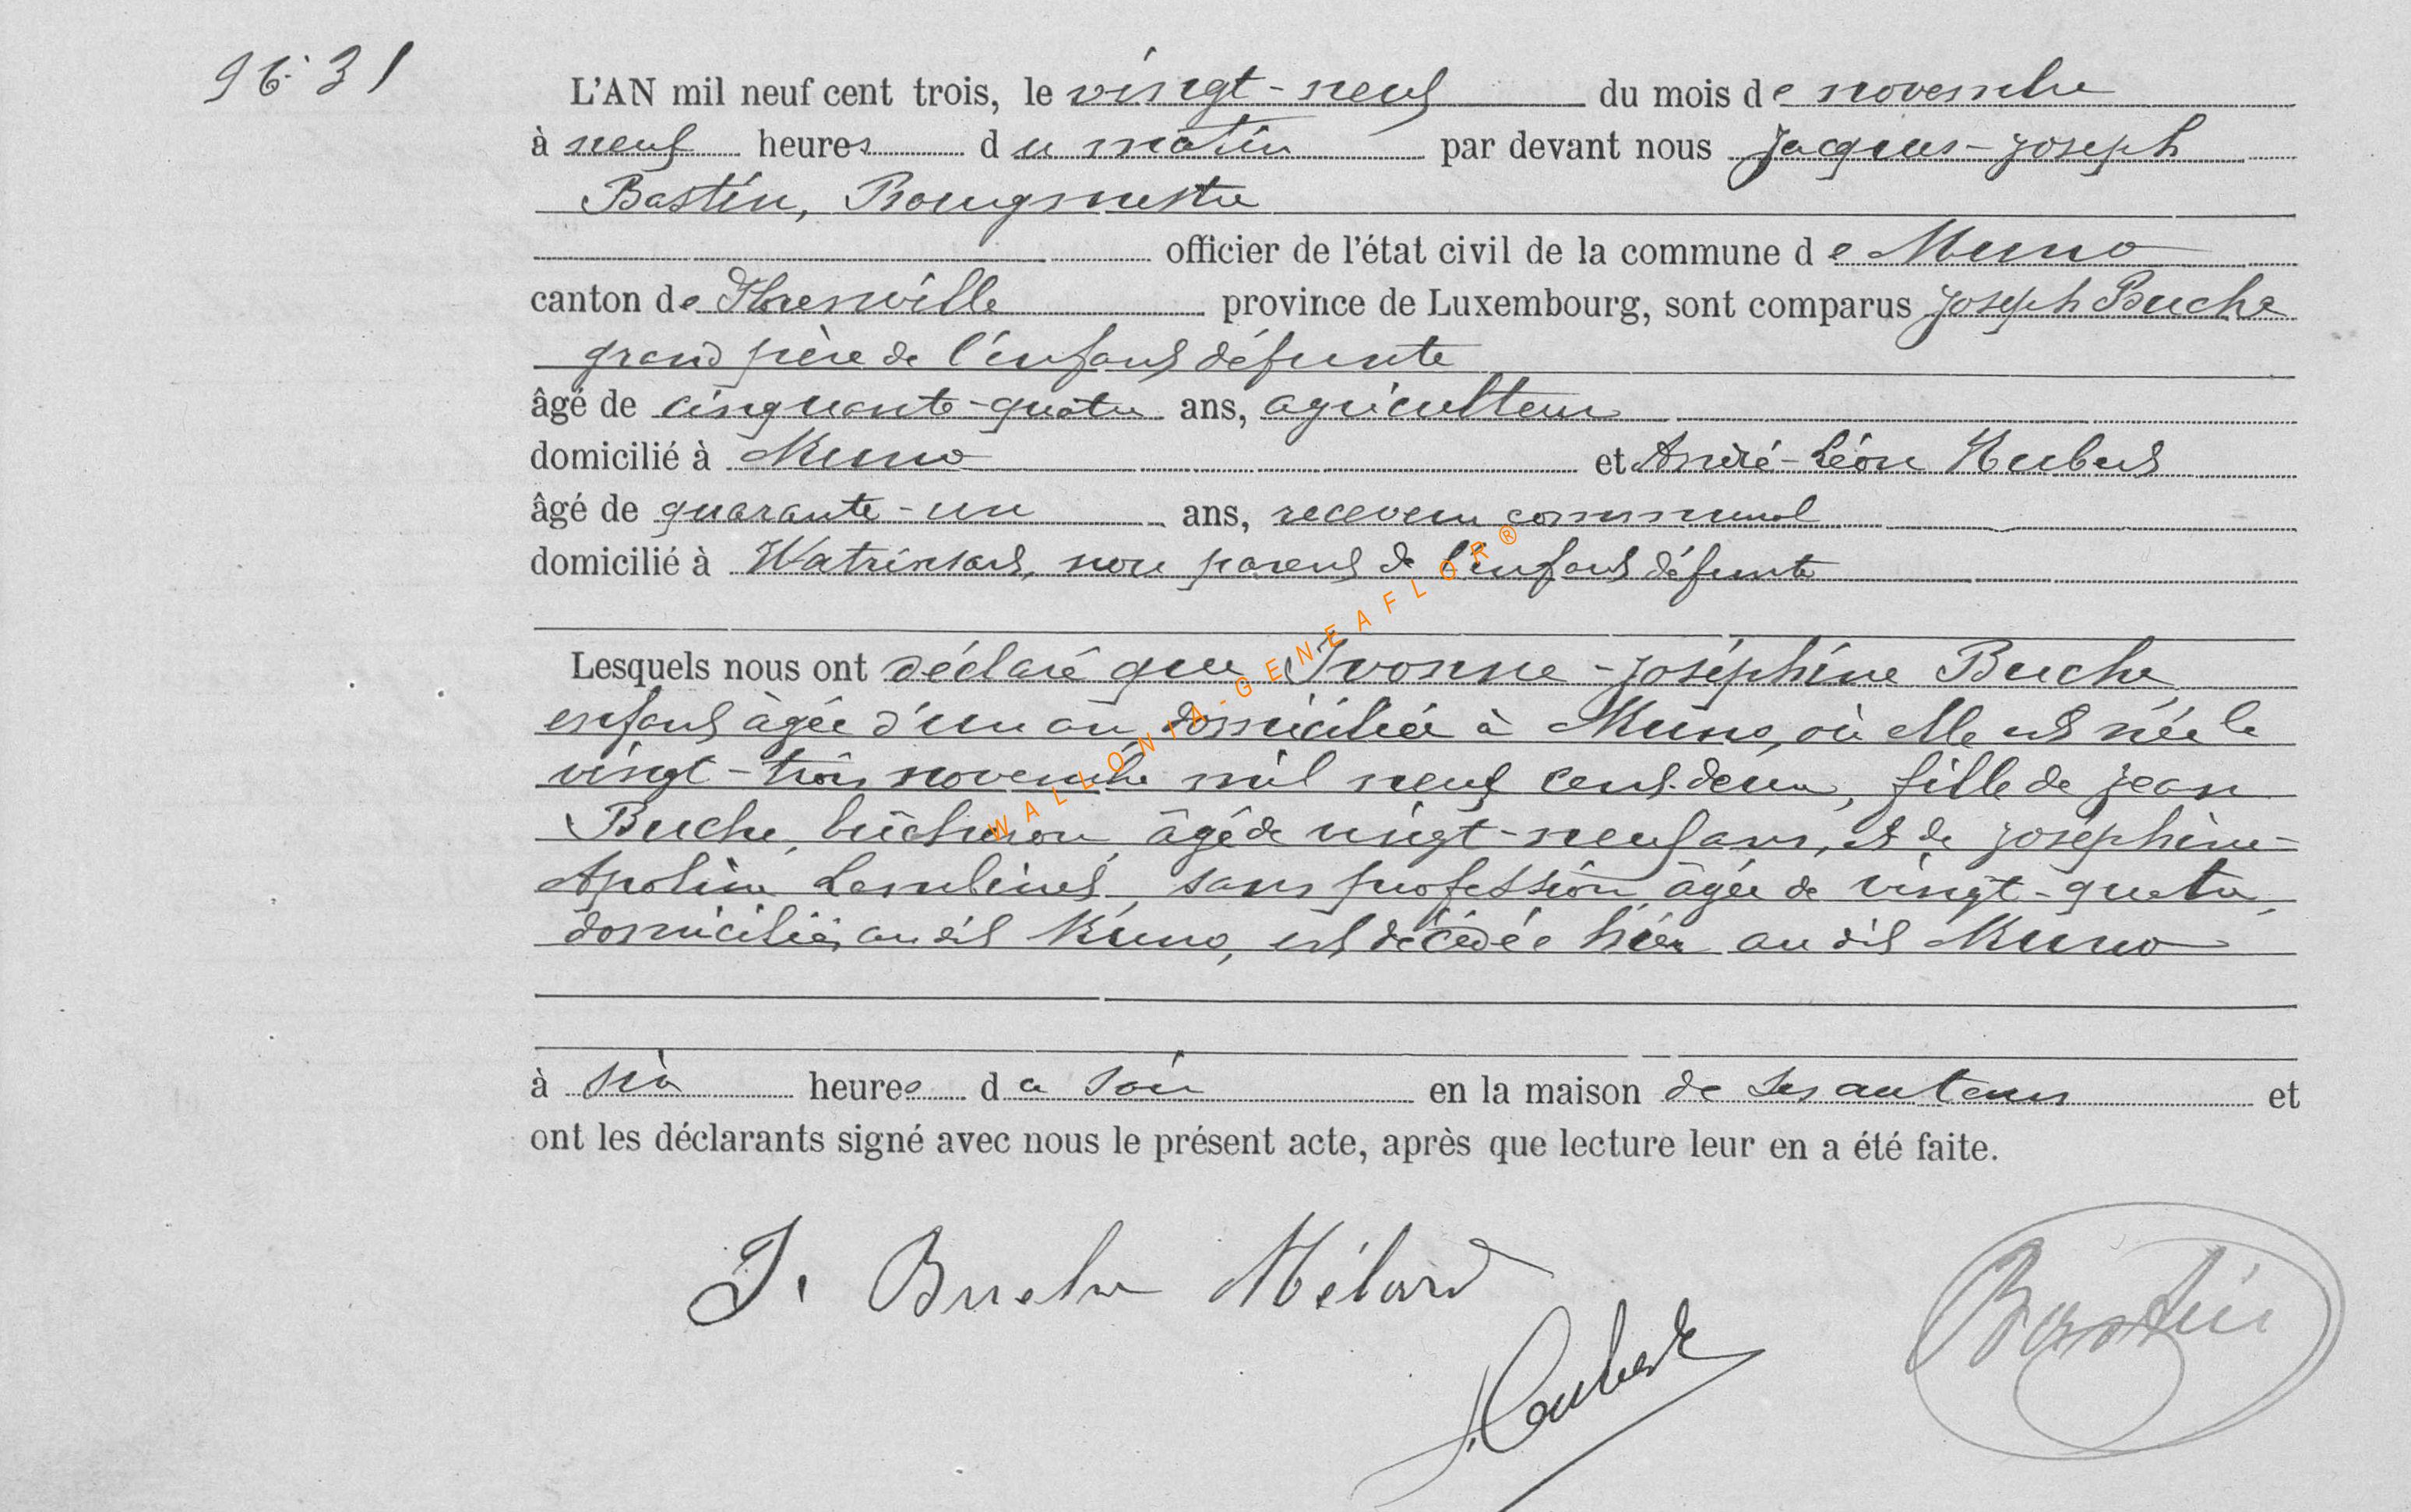 N° 31
L'AN mil neuf cent trois, le vingt-neuf du mois de novembre
à neuf heures du matin par devant nous Jacques-Joseph
Bastin, Bourgmestre
officier de l'état civil de la commune de Muno
canton de Florenville province de Luxembourg, sont comparus Joseph Buche
grand père de l'enfant défunte
âgé de cinquante-quatre ans, agriculteur
domicilié à Muno et André-Léon Hubert
âgé de quarante-un ans, receveur communal
domicilié à Watrinsart, non parent de l'enfant défunte
Lesquels nous ont déclaré que Yvonne-Joséphine Buche,
enfant âgée d'un an, domiciliée à Muno, où elle est née le
vingt-trois novembre mil neuf cent deux, fille de Jean
Buche, bûcheron, âgé de vingt-neuf ans, et de Joséphine-
Apoline, sans profession, âgée de vingt-quatre,
domiciliés au dit Muno, est décédée hier au dit Muno
à six heures du soir en la maison de ses auteurs et
ont les déclarants signé avec nous le présent acte, après que lecture leur en a été faite.
J. Buche Mélard
Hubert
Bastin
WALLONIA-GENEAFLOR®